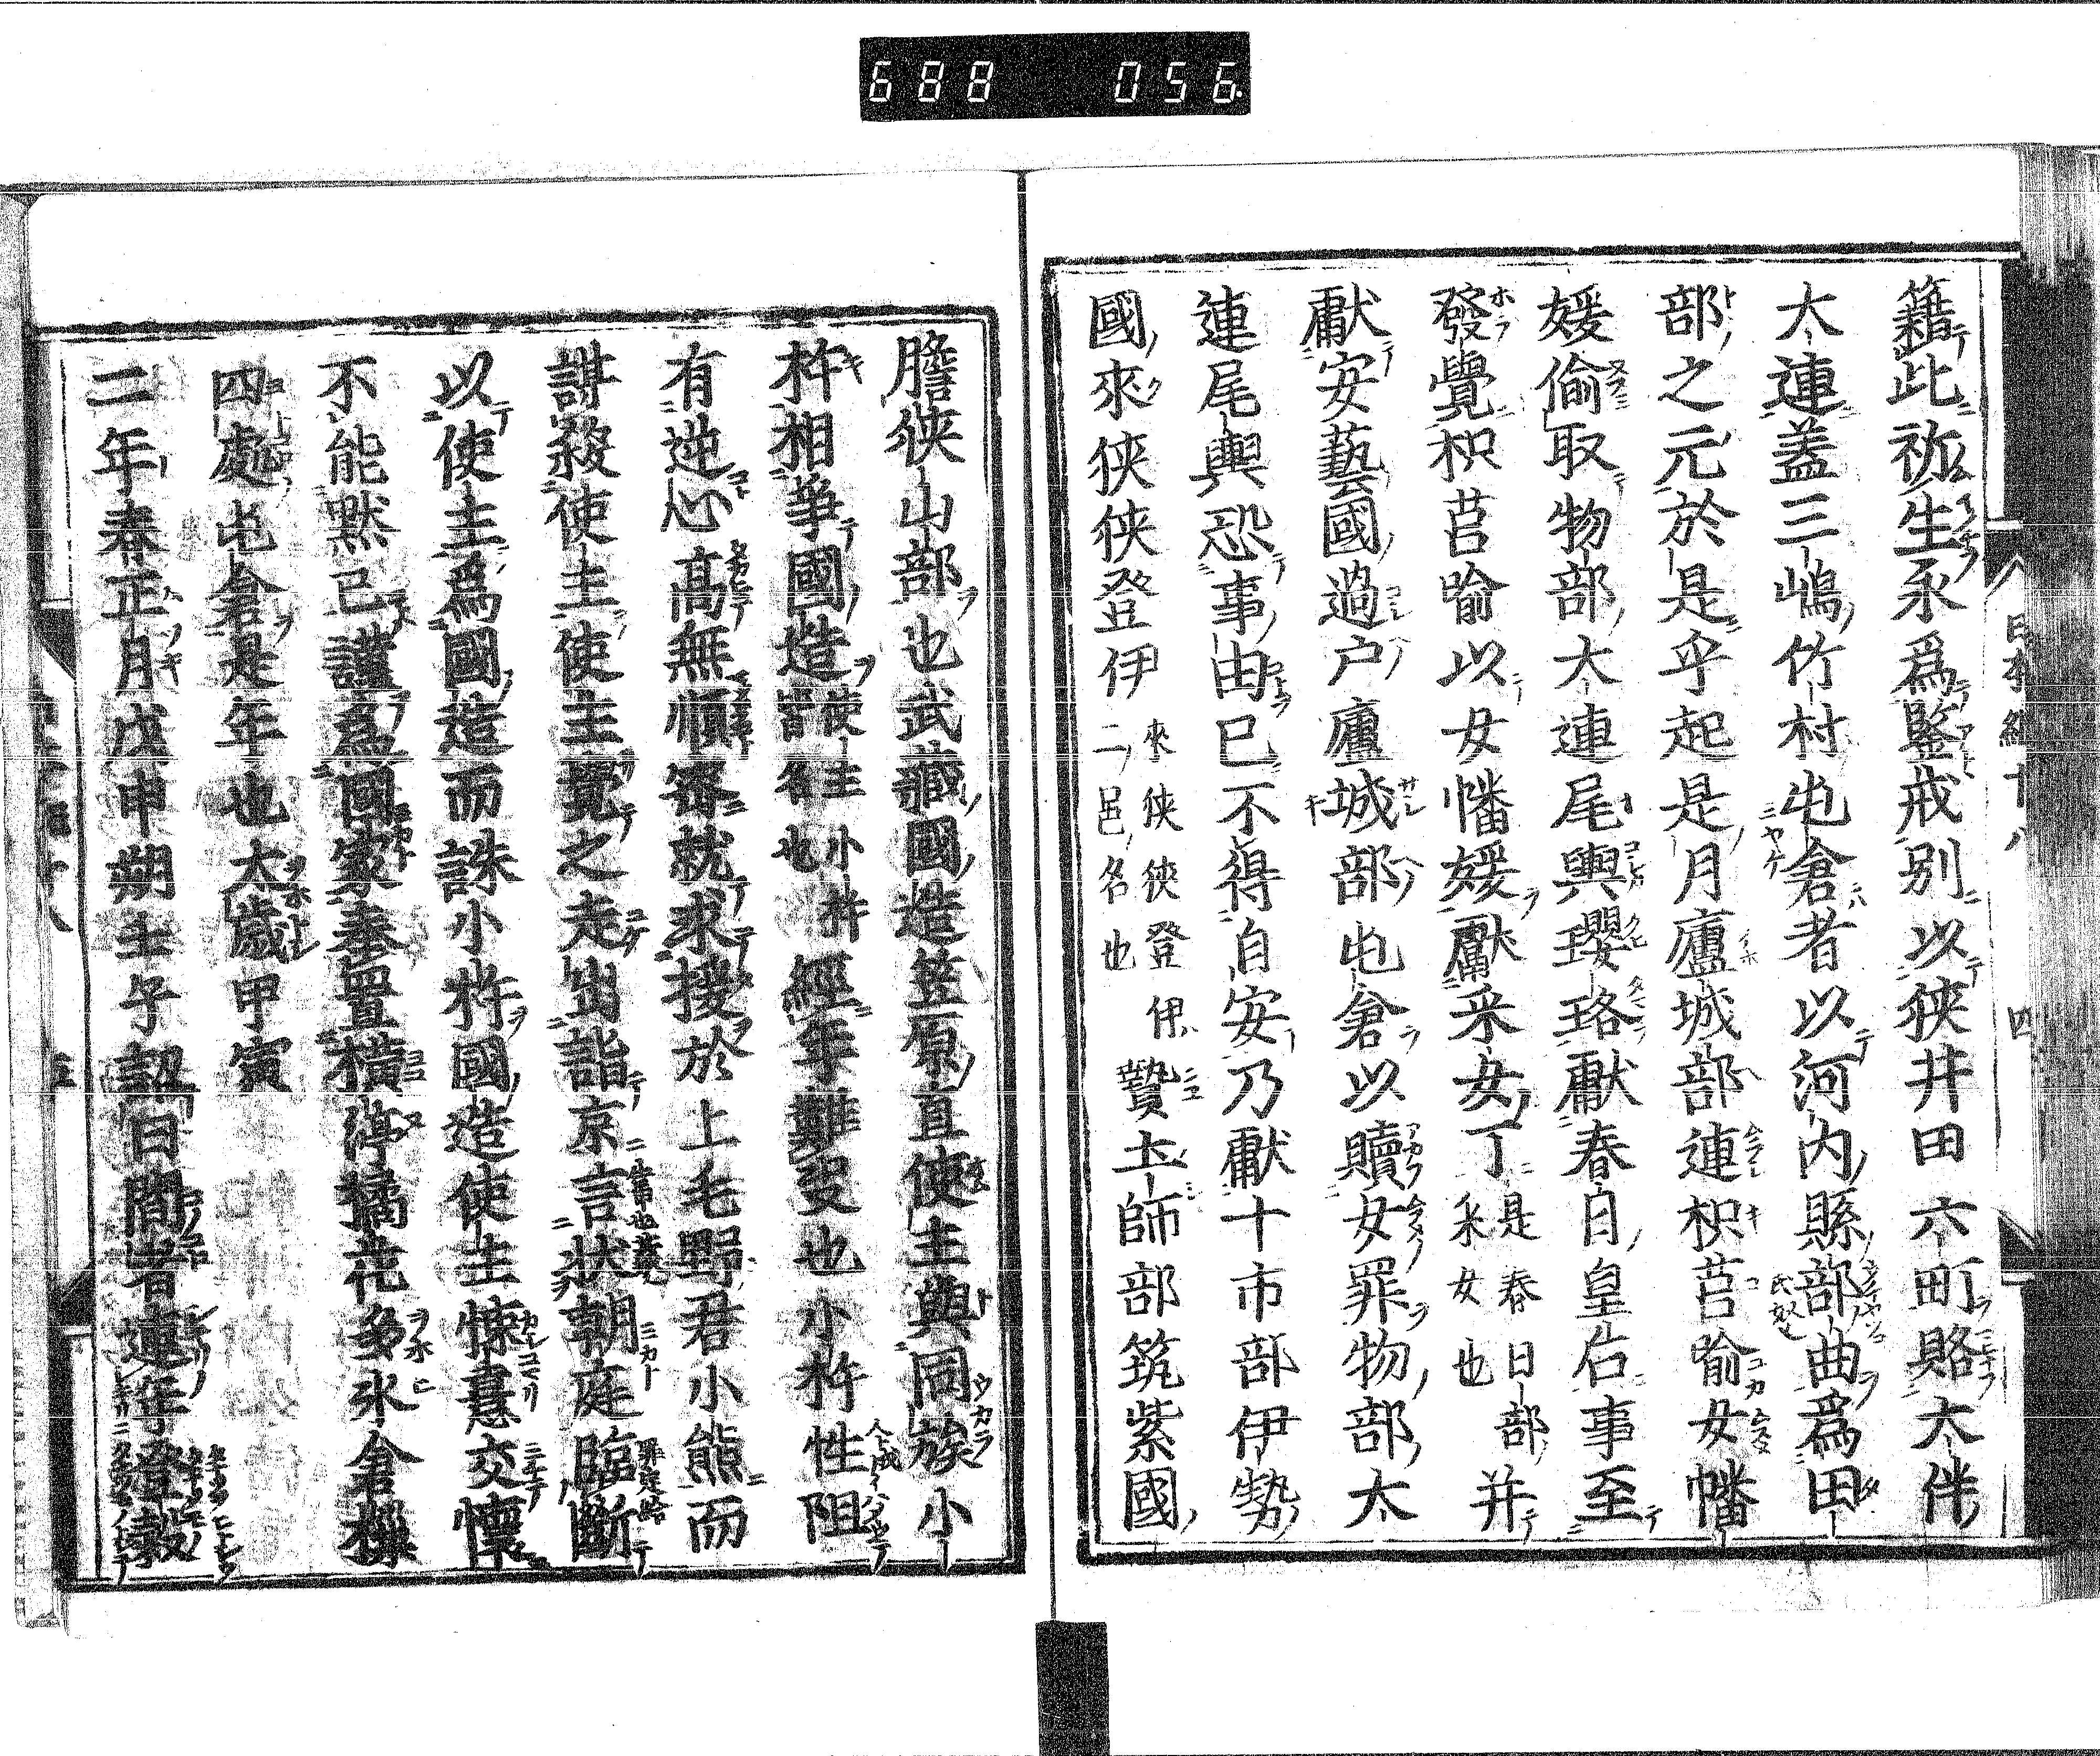 688 056
籍此弥生永爲鑒戒別以狹井田六町賂大伴
大連蓋三嶋竹村屯倉者以河内縣部曲爲田
部之元於是乎起是月廬城部連枳莒喩女幡
媛偷取物部大連尾輿瓔珞獻春日皇后事至
發覺枳莒喩以女幡媛獻采女丁是春日部采女也并
獻安藝國過戸廬城部屯倉以贖女罪物部大
連尾輿恐事由已不得自安乃獻十市部伊勢
國來狹狹登伊來狹狹登伊二邑名也贄土師部筑紫國
膽狹山部也武藏國造笠原直使主與同族小
杵相爭國造使主小杵皆名也經年難決也小杵性阻
有逆心高無順密就求援於上毛野君小熊而
謀殺使主使主覺之走出詣京言狀朝庭臨斷
以使主爲國造而誅小杵國造使主悚憙交懷
不能默已謹爲國家奉置横渟橘花多氷倉樔
四處屯倉是年也太歲甲寅
二年春正月戊申朔壬子詔曰間者連年登穀